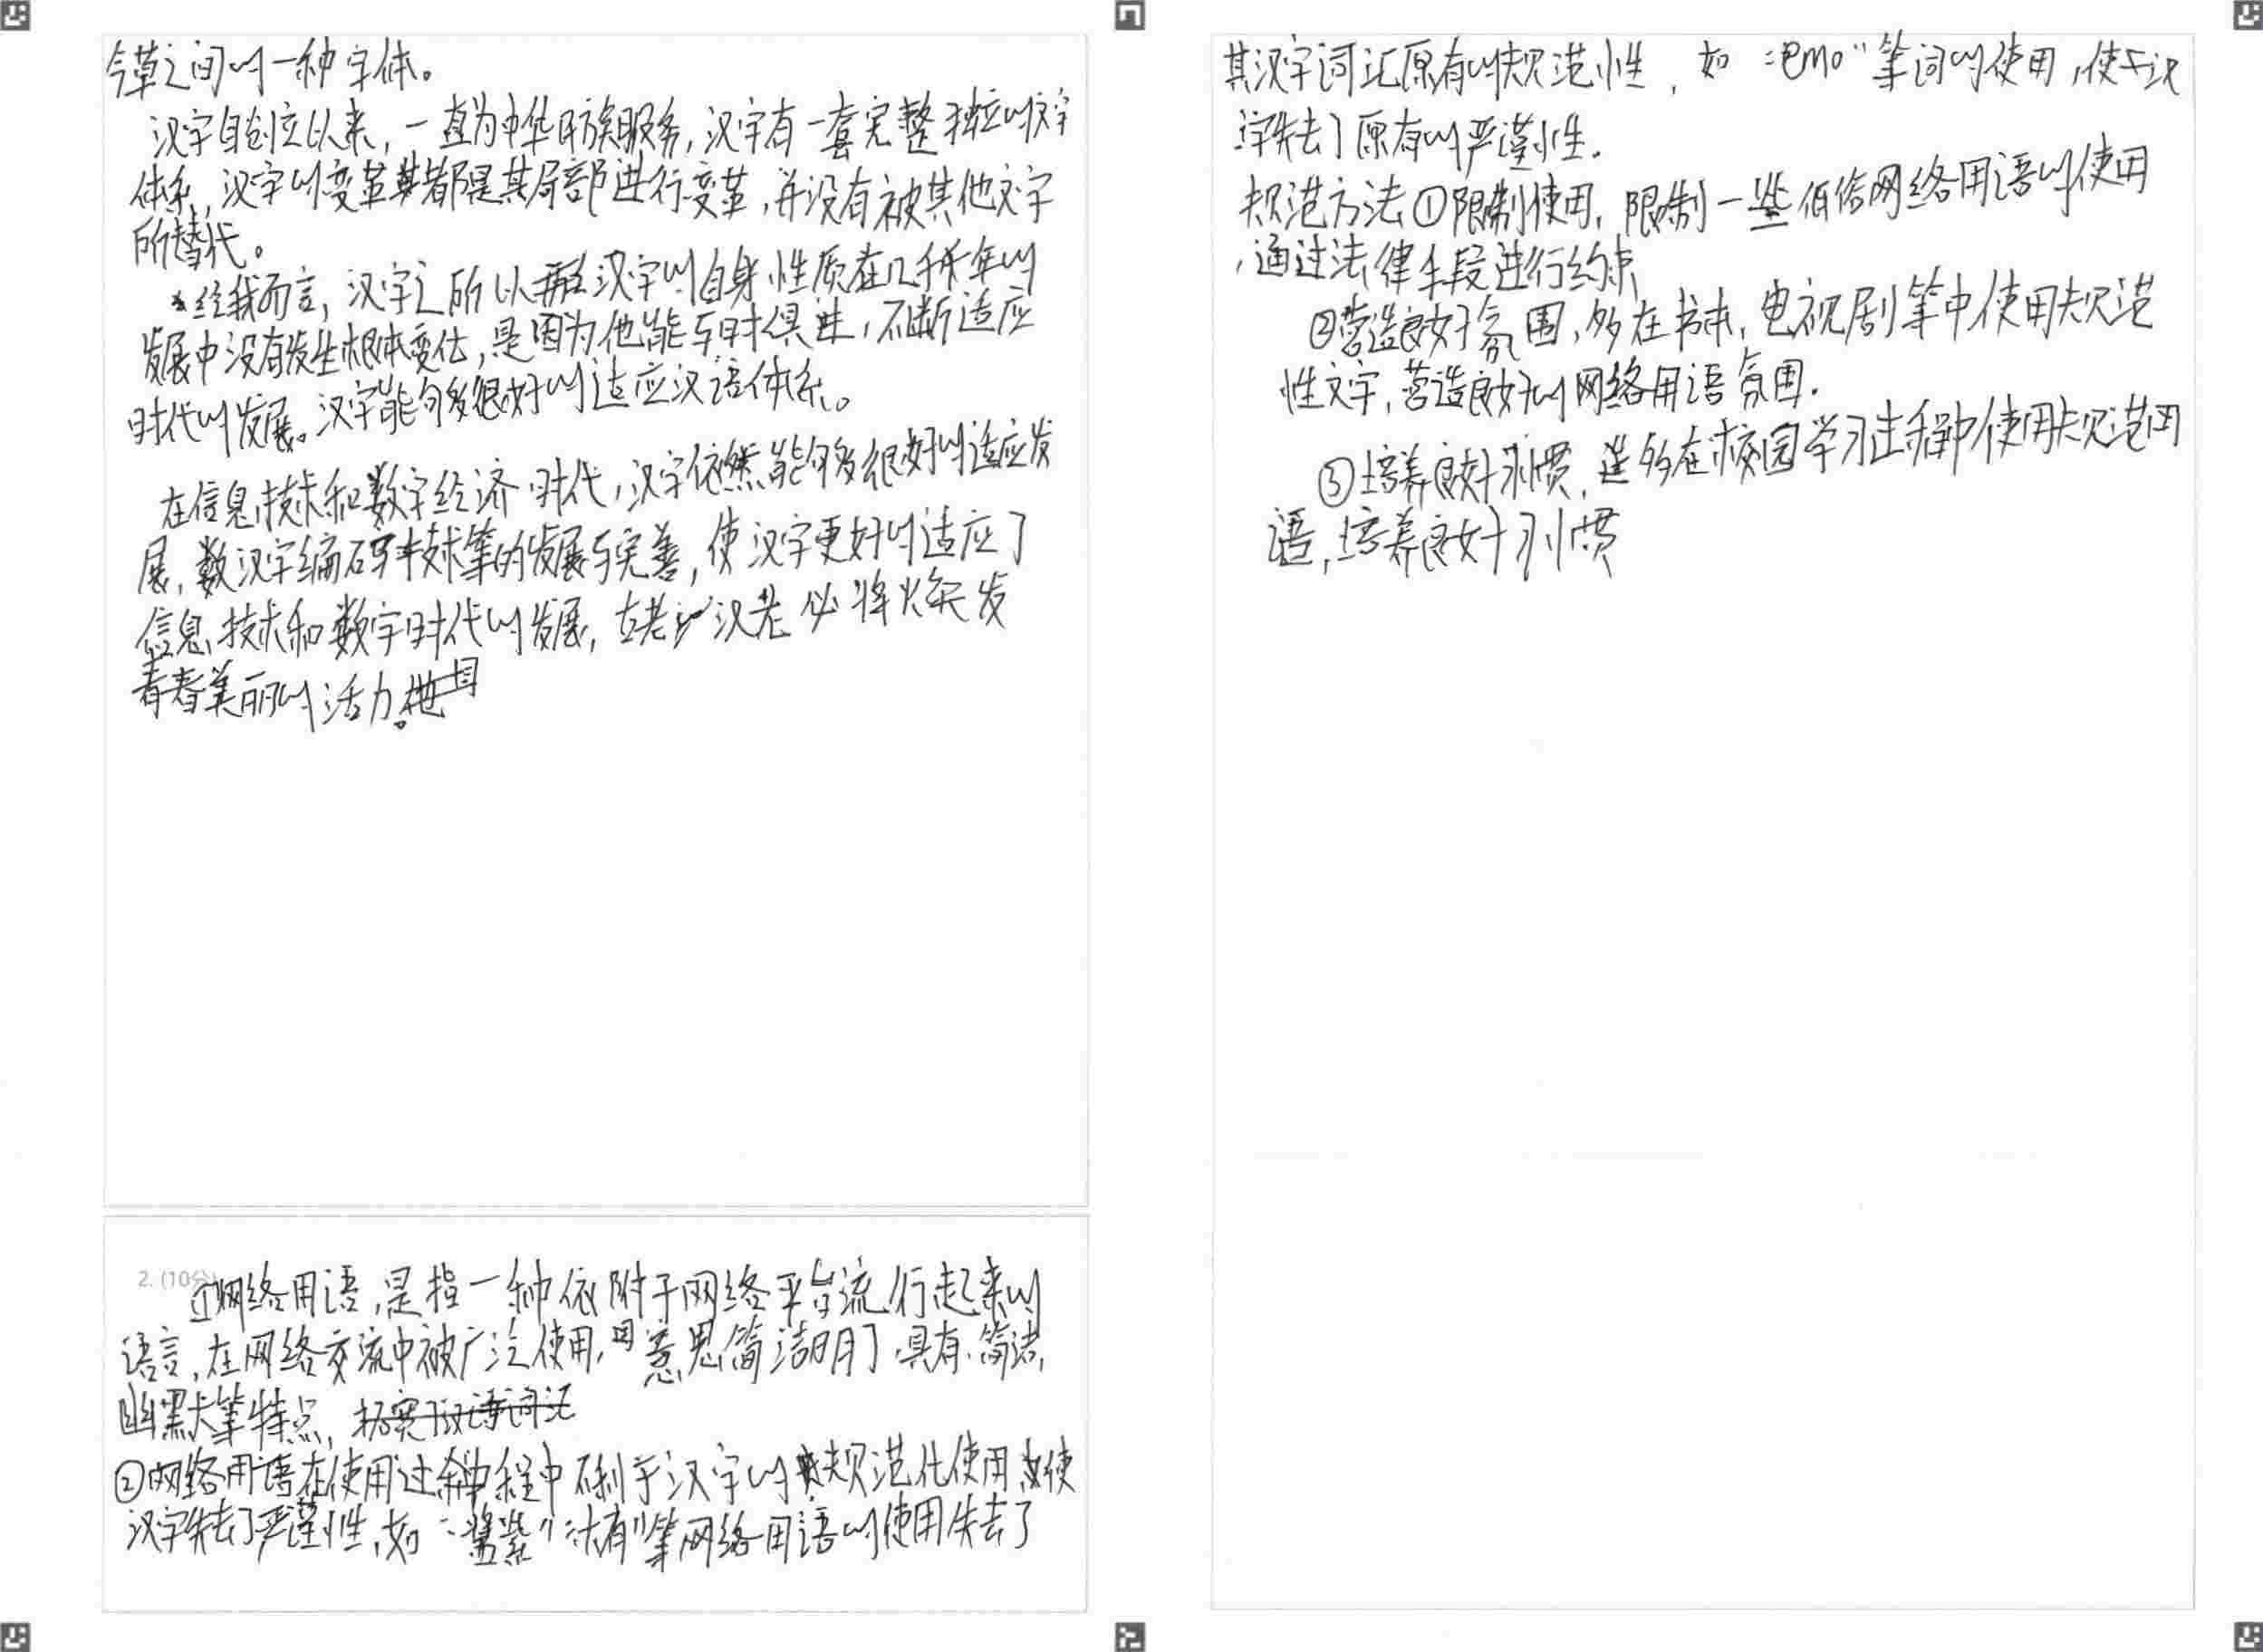 今草之间的一种字体。
汉字自创立以来，一直为中华民族服务，汉字有一套完整独立的文字
体系，汉字的变革都是其局部进行变革，并没有被其他文字
所替代。
我而言，汉字之所以汉字的自身性质在几千年的
发展中没有发生根本变化，是因为他能与时俱进，不断适应
时代的发展。汉字能够很好的适应汉语体系。
在信息技术和数字经济时代，汉字依然能够很好的适应发
展，汉字编码技术等的发展与完善，使汉字更好的适应了
信息技术和数字时代的发展，古老的汉老必将焕发
青春美丽的活力。
2. (10分)
①网络用语，是指一种依附于网络平台流行起来的
语言，在网络交流中被广泛使用，因意思简洁明了，具有简洁，
幽默等特点，
②网络用语在使用过程中不利于汉字的规范化使用，使
汉字失去了严谨性，如“酱紫”“木有”等网络用语的使用失去了
其汉字词汇原有的规范性，如“emo”等词的使用，使汉
字失去了原有的严谨性。
规范方法①限制使用，限制一些低俗网络用语的使用
，通过法律手段进行约束
②营造良好氛围，多在书本，电视剧等中使用规范
性文字，营造良好的网络用语氛围。
③培养良好习惯，多在校园学习过程中使用规范用
语，培养良好习惯